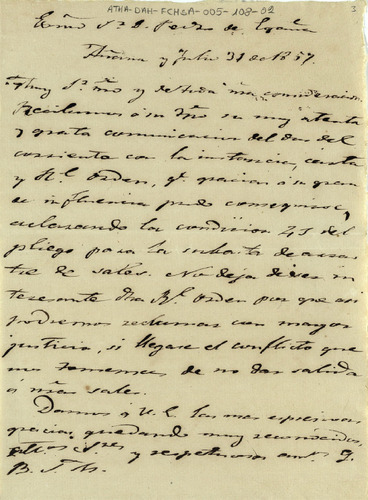 ATHA-DAH-FCHSA-005-108-02
3
Exmo Sr. D. Pedro de Egaña
Añana y Julio 31 de 1857.
Muy Sr. mio y de toda mi consideracion:
Recibimos á su tpo su muy atenta
y grata comunicacion del dos del
corriente con la instancia, carta
y Rl. orden, qe. gracias á su gran
de influencia pudo conseguirse,
aclarando la condicion 45 del
pliego para la subasta de arras
tre de sales. No deja de ser in
teresante dha Rl. orden por que asi
podremos reclamar con mayor
justicia, si llegase el conflicto que
nos tememos de no dar salida
á ntras sales.
Damos á V. E. las mas espresivas
gracias, quedando muy reconocidos,
attos Sres y respetuosos ams. Q.
B. S. M.